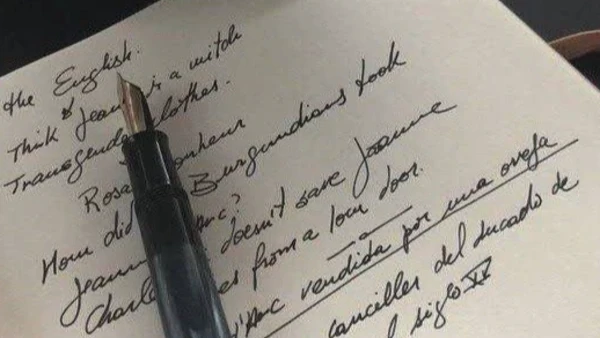 the English.
Think is a witch
Transgender clothes.
Rosa Bonheur
How did Burgundians took
Arc?
doesn't save Joanne
from a low door.
d'Arc vendida por una oveja
canciller del ducado de
siglo XV